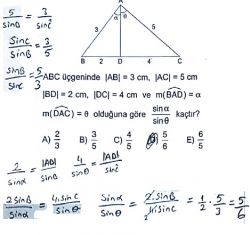 5/sinB = 3/sinC
sinC/sinB = 3/5
sinB/sinC = 5/3
A
α θ
3 5
B 2 D 4 C
ABC üçgeninde |AB| = 3 cm, |AC| = 5 cm
|BD| = 2 cm, |DC| = 4 cm ve m(BAD) = α
m(DAC) = θ olduğuna göre sinα/sinθ kaçtır?
A) 2/3 B) 3/5 C) 4/5 D) 5/6 E) 6/5
2/sinα = |AD|/sinB 4/sinθ = |AD|/sinC
2sinB/sinα = 4sinC/sinθ sinα/sinθ = 2sinB/4sinC = 1/2 · 5/3 = 5/6